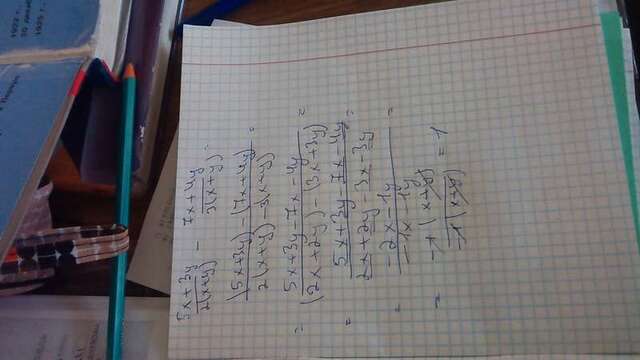 1922 г.
30 декаб
1925 г.
(5x+3y)/(2(x+y)) - (7x+4y)/(3(x+y)) =
((5x+3y)-(7x+4y))/(2(x+y)-3(x+y)) =
= (5x+3y-7x-4y)/((2x+2y)-(3x+3y)) =
= (5x+3y-7x-4y)/(2x+2y-3x-3y) =
= (-2x-1y)/(-1x-1y) =
= (-1(x+y))/(-1(x+y)) = 1